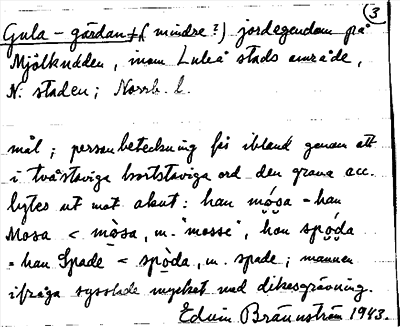 3
Gula-gärdan, + (mindre?) jordegendom på
Mjölkudden, inom Luleå stads område,
N. staden; Norrb. l.
mål; personbeteckning fås ibland genom att
i tvåstaviga kortstaviga ord den grava acc.
bytes ut mot akut: han mó̬sa = han
Mosa < mò̬sa, m. "mosse", han spó̬da
= han Spade < spò̬da, m. spade; mannen
ifråga sysslade mycket med dikesgrävning.
Edvin Brännström 1943.